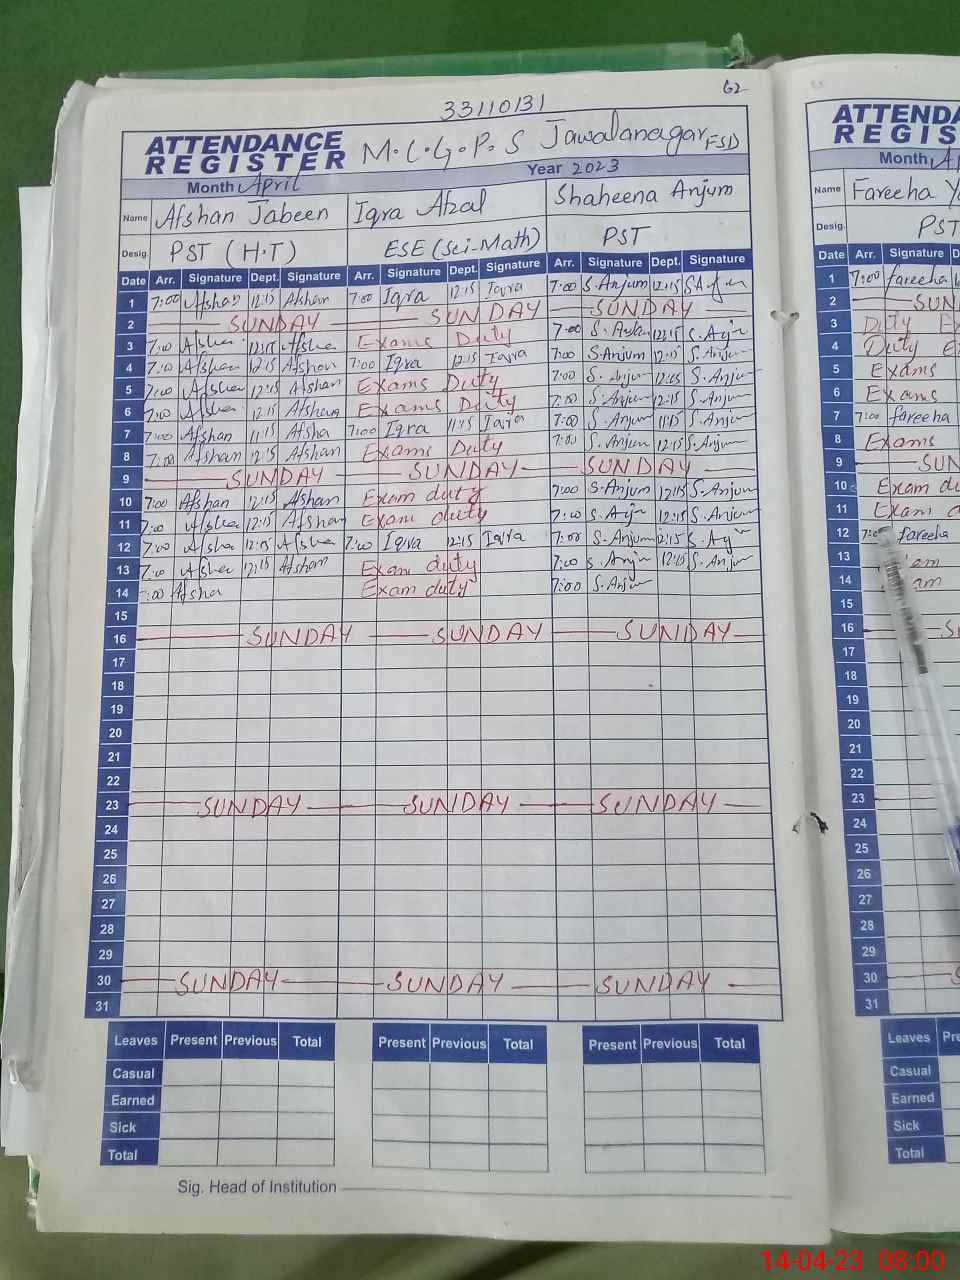 62
33110131
ATTENDANCE REGISTER M.C.G.P.S Jawalanagar FSD
Month April Year 2023
Name Afshan Jabeen Iqra Afzal Shaheena Anjum
Desig. PST (H.T) ESE (Sci-Math) PST
Date Arr. Signature Dept. Signature Arr. Signature Dept. Signature Arr. Signature Dept. Signature
1 7:00 Afshan 12:15 Afshan 7:00 Iqra 12:15 Iqra 7:00 S.Anjum 12:15
2 SUNDAY SUNDAY SUNDAY
3 7:00 12:15 Exams Duty 7:00 12:15
4 7:00 Afshan 12:15 Afshan 7:00 Iqra 12:15 Iqra 7:00 S.Anjum 12:15 S.Anjum
5 7:00 12:15 Afshan Exams Duty 7:00 S.Anjum 12:15 S.Anjum
6 7:00 12:15 Afshan Exams Duty 7:00 S.Anjum 12:15 S.Anjum
7 7:00 Afshan 11:15 Afsha 7:00 Iqra 11:15 Iqra 7:00 S.Anjum 11:15 S.Anjum
8 7:00 Afshan 12:15 Afshan Exams Duty 7:00 S.Anjum 12:15 S.Anjum
9 SUNDAY SUNDAY SUNDAY
10 7:00 Afshan 12:15 Afshan Exam duty 7:00 S.Anjum 12:15 S.Anjum
11 7:00 12:15 Afshan Exam duty 7:00 12:15 S.Anjum
12 7:00 12:15 7:00 Iqra 12:15 Iqra 7:00 S.Anjum 12:15
13 7:00 12:15 Afsham Exam duty 7:00 12:15 S.Anjum
14 7:00 Afsha Exam duty 7:00 S.Anjum
15
16 SUNDAY SUNDAY SUNDAY
17
18
19
20
21
22
23 SUNDAY SUNDAY SUNDAY
24
25
26
27
28
29
30 SUNDAY SUNDAY SUNDAY
31
Leaves Present Previous Total Present Previous Total Present Previous Total
Casual
Earned
Sick
Total
Sig. Head of Institution
ATTENDA
REGIS
Month
Name Fareeha
Desig. PST
Date Arr. Signature
1 7:00 fareeha
2 SUN
3 Duty
4 Duty
5 Exams
6 Exams
7 7:00 fareeha
8 Exams
9 SUN
10 Exam du
11 Exam
12 fareeha
13 am
14 am
15
16
17
18
19
20
21
22
23
24
25
26
27
28
29
30
31
Leaves Pre
Casual
Earned
Sick
Total
14-04-23 08:00